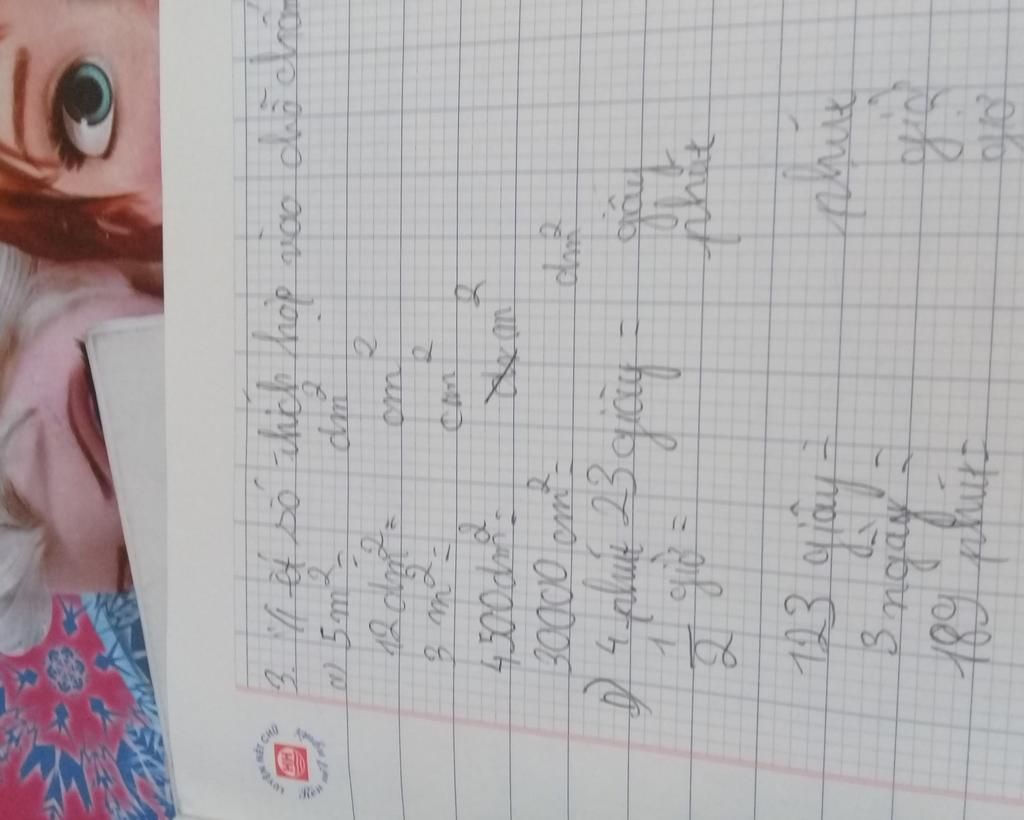 3. Viết số thích hợp vào chỗ chấm
a) 5m² = dm²
12dm² = cm²
3 m² = cm²
4500dm² = m²
30000 cm² = dm²
b) 4 phút 23 giây = giây
1/2 giờ = phút
123 giây = phút giây
3 ngày = giờ
189 phút = giờ
LUYỆN NÉT CHỮ
HH